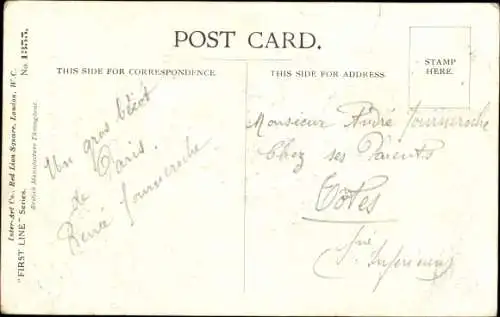 POST CARD.
THIS SIDE FOR CORRESPONDENCE.
THIS SIDE FOR ADDRESS.
STAMP
HERE.
Un gros bécot
de
Paris.
René Journersche
Monsieur André Journersche
Chez ses Parents
Tôtes
Sne Inférieure
Inter-Art Co., Red Lion Square, London, W.C.
British Manufacture Throughout.
"FIRST LINE" Series.
No. 1355.